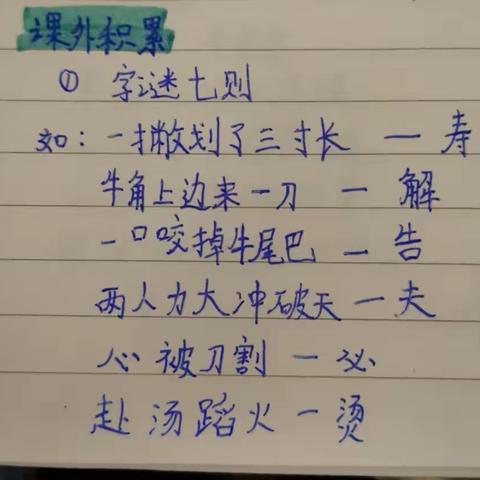 课外积累
① 字谜七则
如：一撇划了三寸长 — 寿
牛角上边来一刀 — 解
一口咬掉牛尾巴 — 告
两人力大冲破天 — 夫
心被刀割 — 必
赴汤蹈火 — 烫